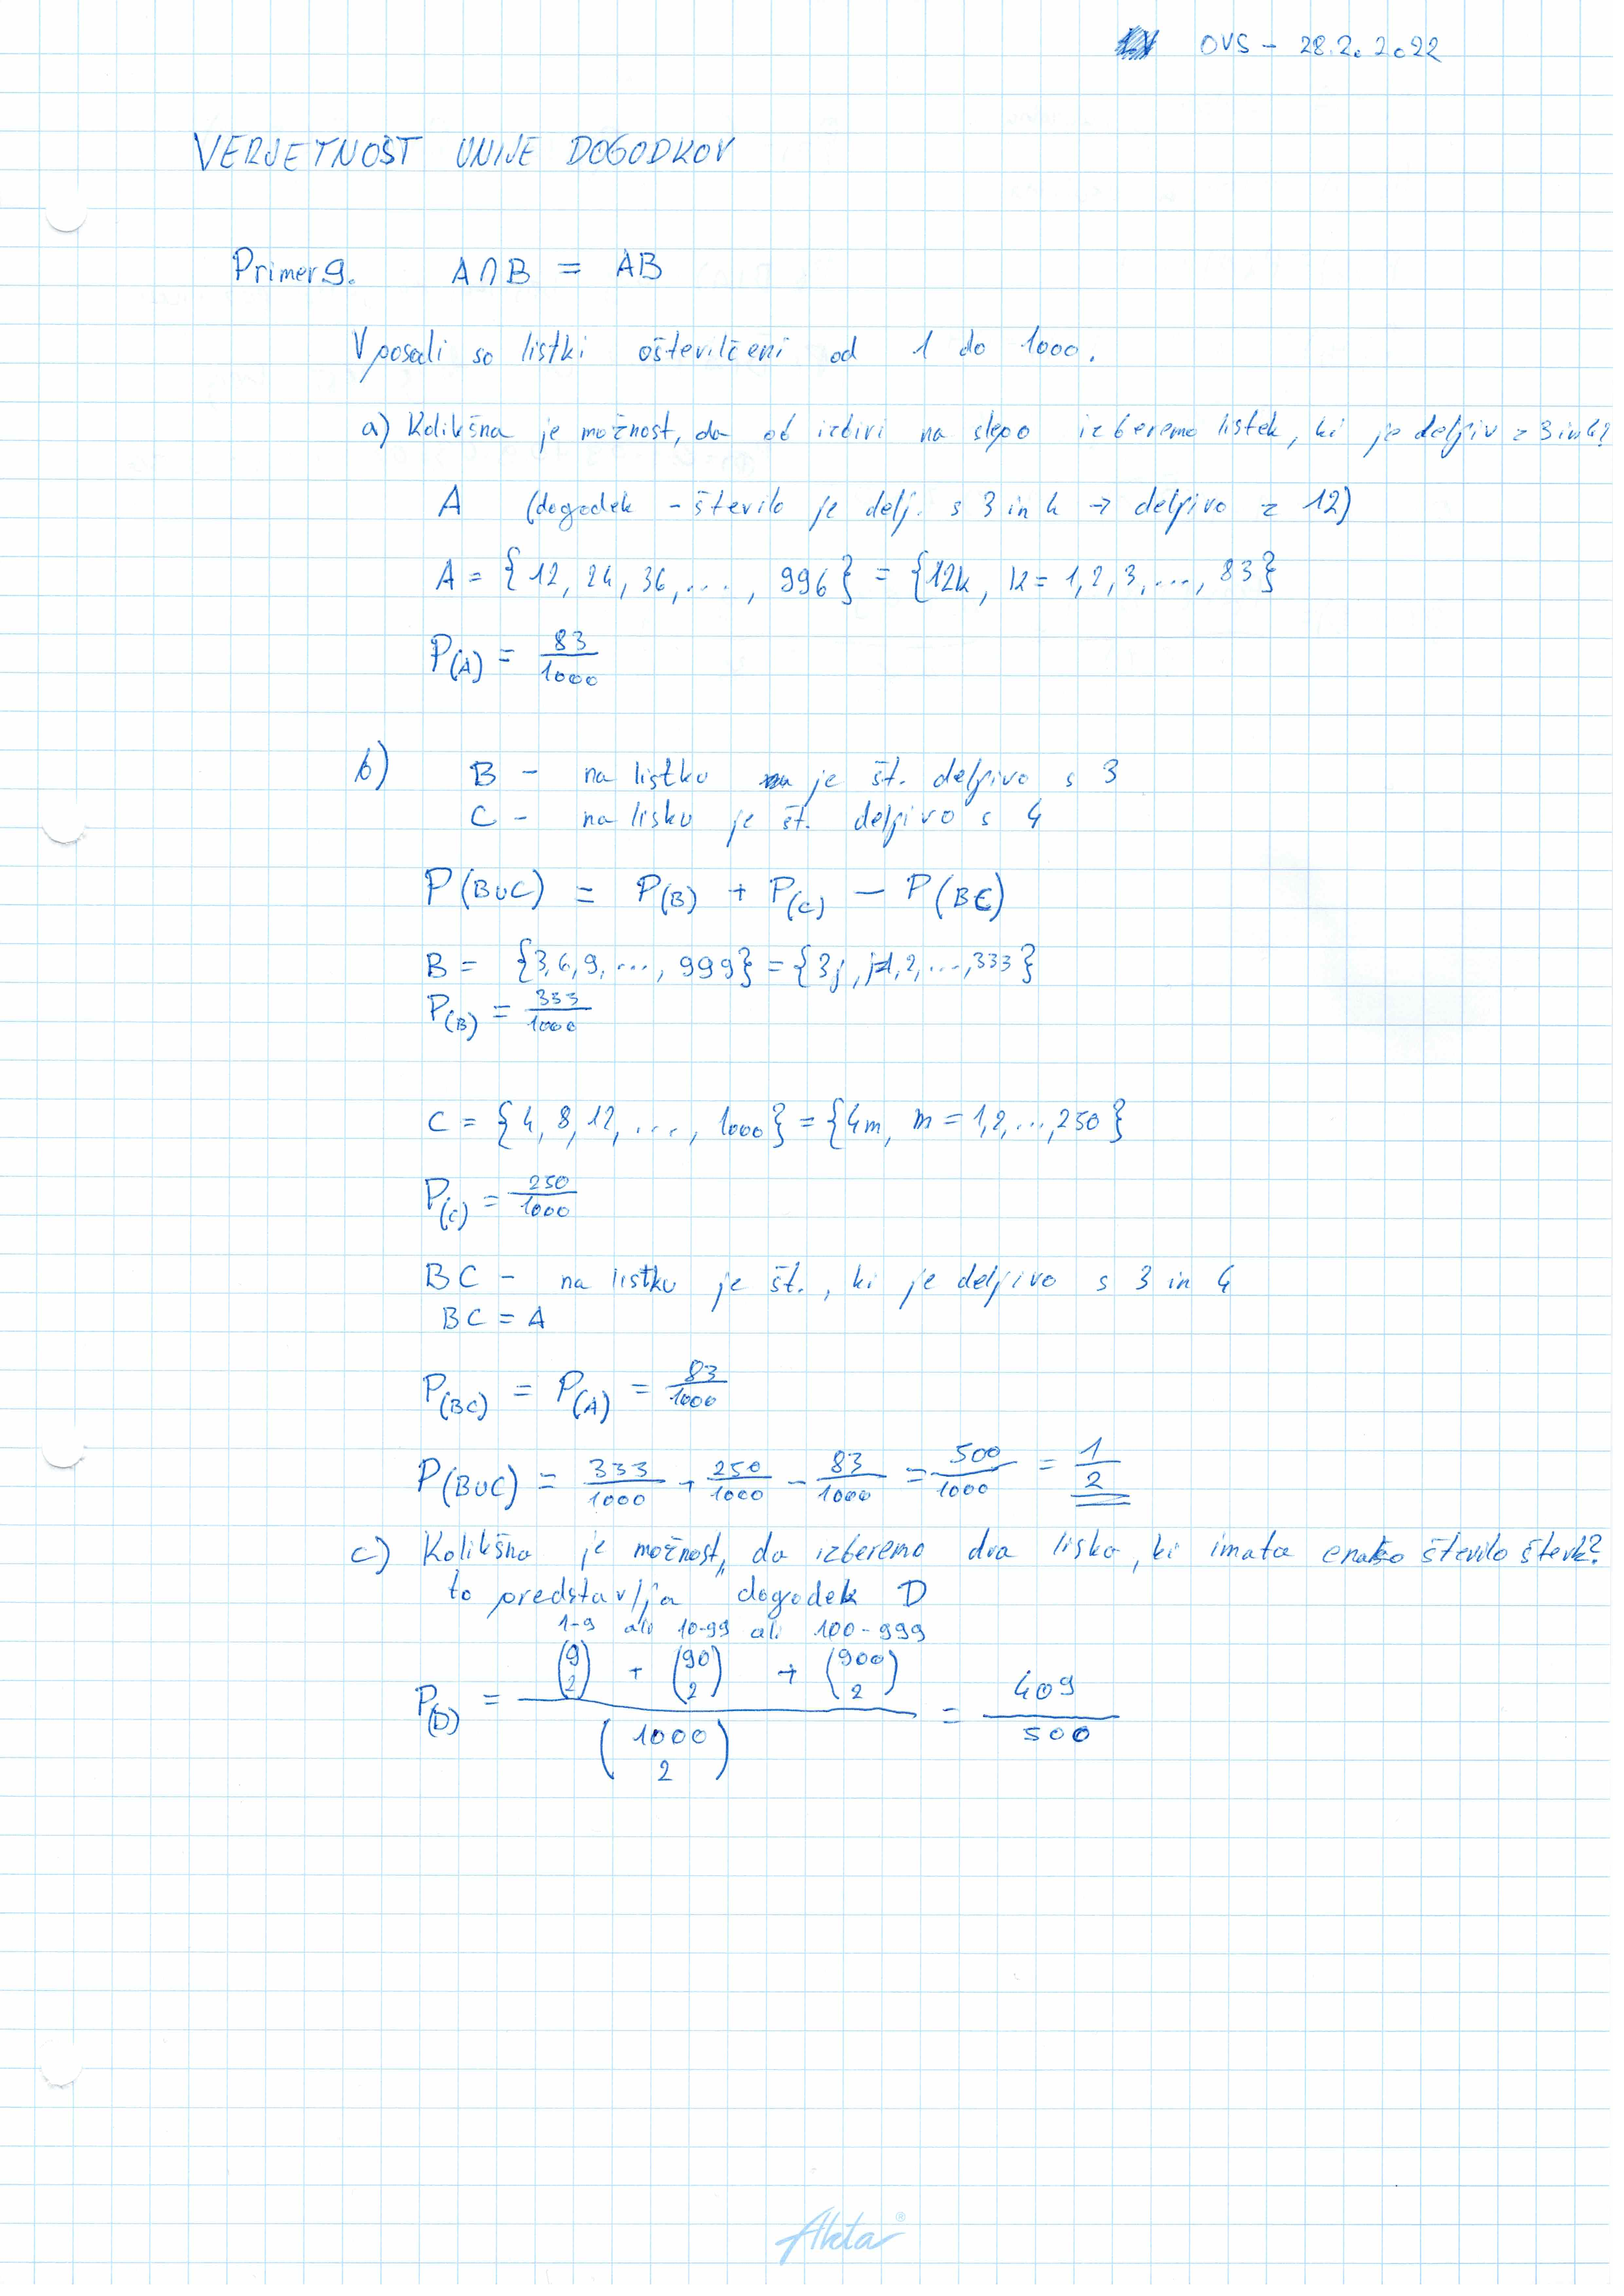 OVS - 28.2.2022
VERJETNOST UNIJE DOGODKOV
Primer 9. A∩B = AB
V posodi so listki oštevilčeni od 1 do 1000.
a) Kolikšna je možnost, da ob izbiri na slepo izberemo listek, ki je deljiv z 3 in 4?
A (dogodek - število je delj. s 3 in 4 → deljivo z 12)
A = {12, 24, 36, ..., 996} = {12k, k = 1, 2, 3, ..., 83}
P(A) = 83/1000
b) B - na listku je št. deljivo s 3
C - na lisku je št. deljivo s 4
P(B∪C) = P(B) + P(C) - P(BC)
B = {3, 6, 9, ..., 999} = {3j, j=1, 2, ..., 333}
P(B) = 333/1000
C = {4, 8, 12, ..., 1000} = {4m, m = 1, 2, ..., 250}
P(C) = 250/1000
BC - na listku je št., ki je deljivo s 3 in 4
BC = A
P(BC) = P(A) = 83/1000
P(B∪C) = 333/1000 + 250/1000 - 83/1000 = 500/1000 = 1/2
c) Kolikšna je možnost, da izberemo dva liska, ki imata enako število števk?
to predstavlja dogodek D
1-9 ali 10-99 ali 100-999
P(D) = ((9 2) + (90 2) + (900 2)) / (1000 2) = 409/500
Akta®